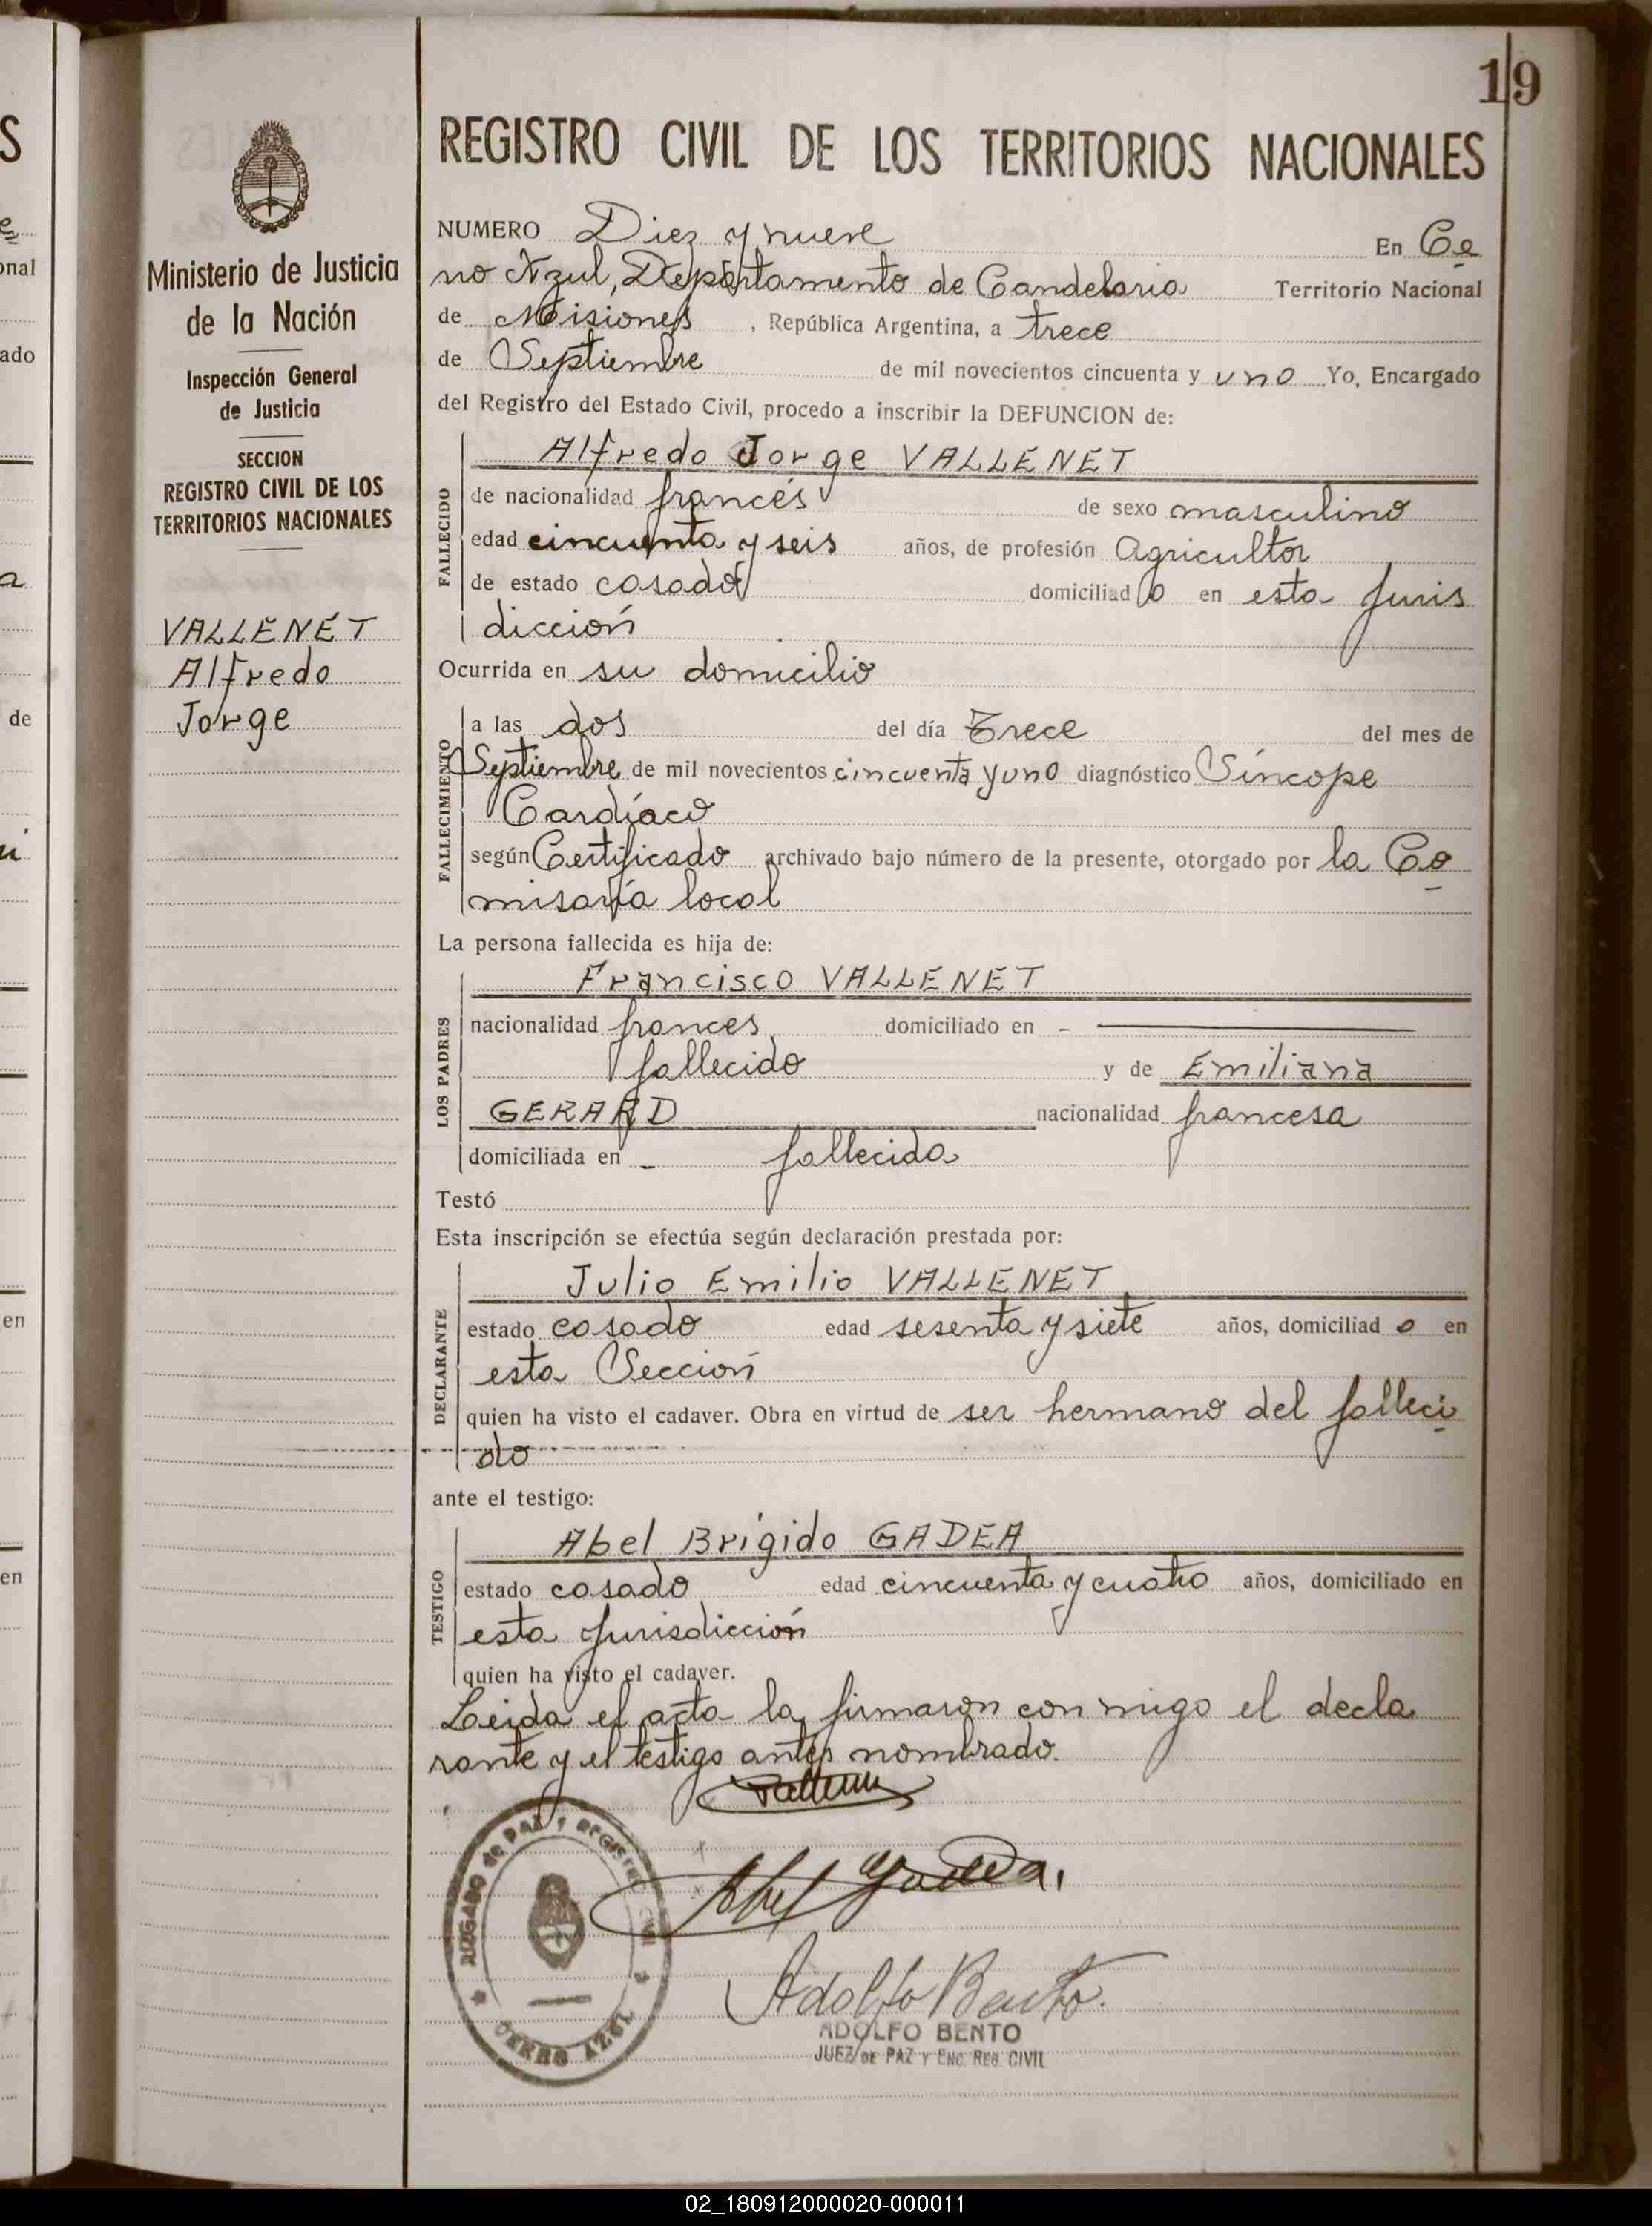 19
REGISTRO CIVIL DE LOS TERRITORIOS NACIONALES
Ministerio de Justicia
de la Nación
Inspección General
de Justicia
SECCION
REGISTRO CIVIL DE LOS
TERRITORIOS NACIONALES
VALLENET
Alfredo
Jorge
NUMERO Diez y nueve En Ce
rro Azul, Departamento de Candelaria Territorio Nacional
de Misiones, República Argentina, a trece
de Septiembre de mil novecientos cincuenta y uno Yo, Encargado
del Registro del Estado Civil, procedo a inscribir la DEFUNCION de:
FALLECIDO
Alfredo Jorge VALLENET
de nacionalidad francés de sexo masculino
edad cincuenta y seis años, de profesión Agricultor
de estado casado domiciliad o en esta Juris
dicción
Ocurrida en su domicilio
FALLECIMIENTO
a las dos del día Trece del mes de
Septiembre de mil novecientos cincuenta y uno diagnóstico Síncope
Cardíaco
según Certificado archivado bajo número de la presente, otorgado por la Co
misaría local
La persona fallecida es hija de:
LOS PADRES
Francisco VALLENET
nacionalidad frances domiciliado en -
fallecido y de Emiliana
GERARD nacionalidad francesa
domiciliada en - fallecida
Testó
Esta inscripción se efectúa según declaración prestada por:
DECLARANTE
Julio Emilio VALLENET
estado casado edad sesenta y siete años, domiciliad o en
esta Sección
quien ha visto el cadaver. Obra en virtud de ser hermano del falleci
do
ante el testigo:
TESTIGO
Abel Brígido GADEA
estado casado edad cincuenta y cuatro años, domiciliado en
esta Jurisdicción
quien ha visto el cadaver.
Leída el acta la firmaron con migo el decla
rante y el testigo antes nombrado.
JUZGADO DE PAZ Y REGISTRO CIVIL
CERRO AZUL
Abel Gadea.
Adolfo Bento.
ADOLFO BENTO
JUEZ DE PAZ Y ENC. REG. CIVIL
S
onal
ado
a
de
en
en
02_180912000020-000011